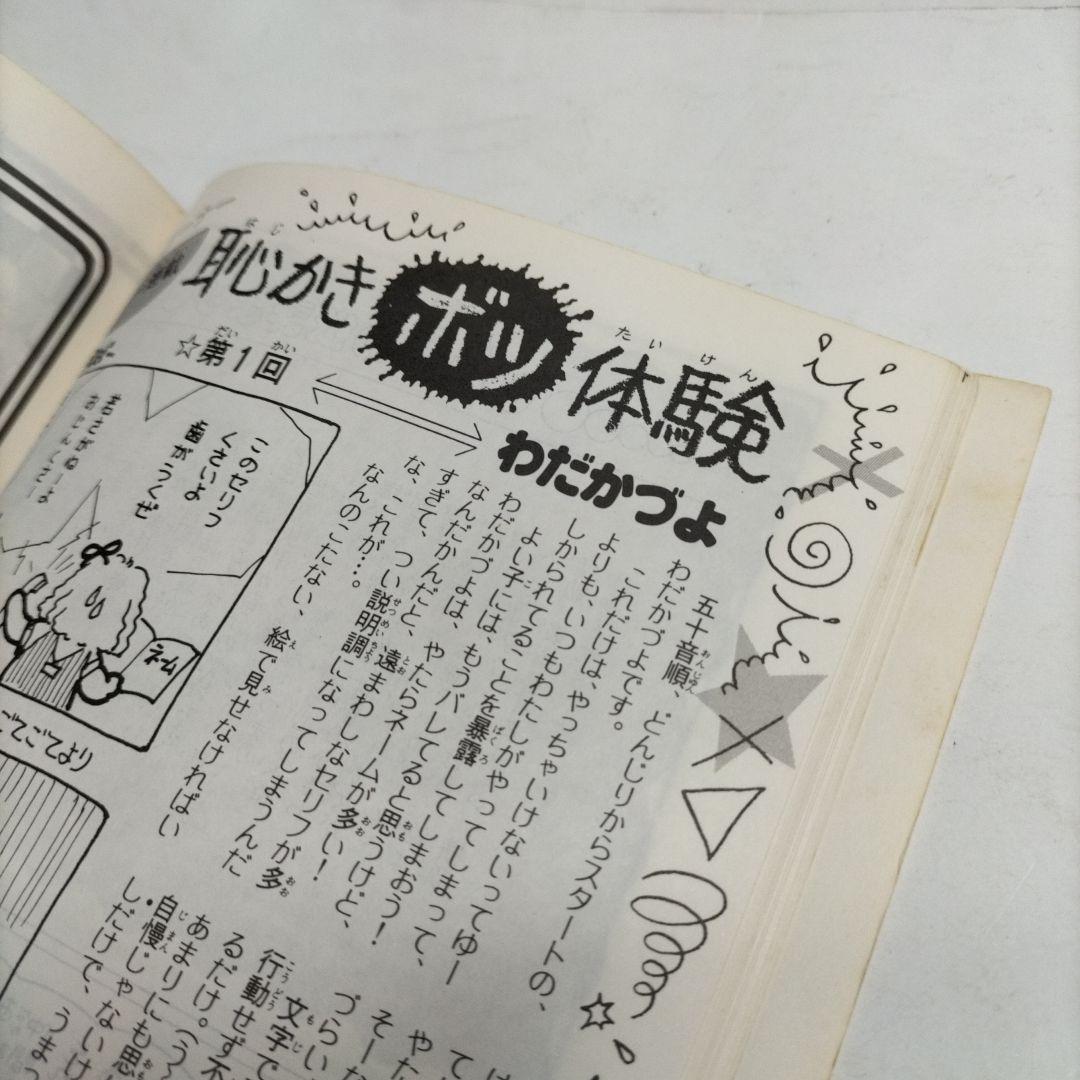 恥かきボツ体験
☆第1回
わだかづよ
五十音順、どんじりからスタートの、
わだかづよです。
これだけは、やっちゃいけないってゆー
よりも、いつもわたしがやってしまって、
しかられてることを暴露してしまおう!
よい子には、もうバレてると思うけど、
わだかづよは、やたらネームが多い!
なんだかんだと、遠まわしなセリフが多
すぎて、つい説明調になってしまうんだ
な、これが…。
なんのこたない、絵で見せなければい
このセリフ
くさいよ
歯がうくぜ
ネーム
ごてごてより
文字で
行動せず
るだけ。
あまりにも思
・自慢じゃないけ
しだけで、うま